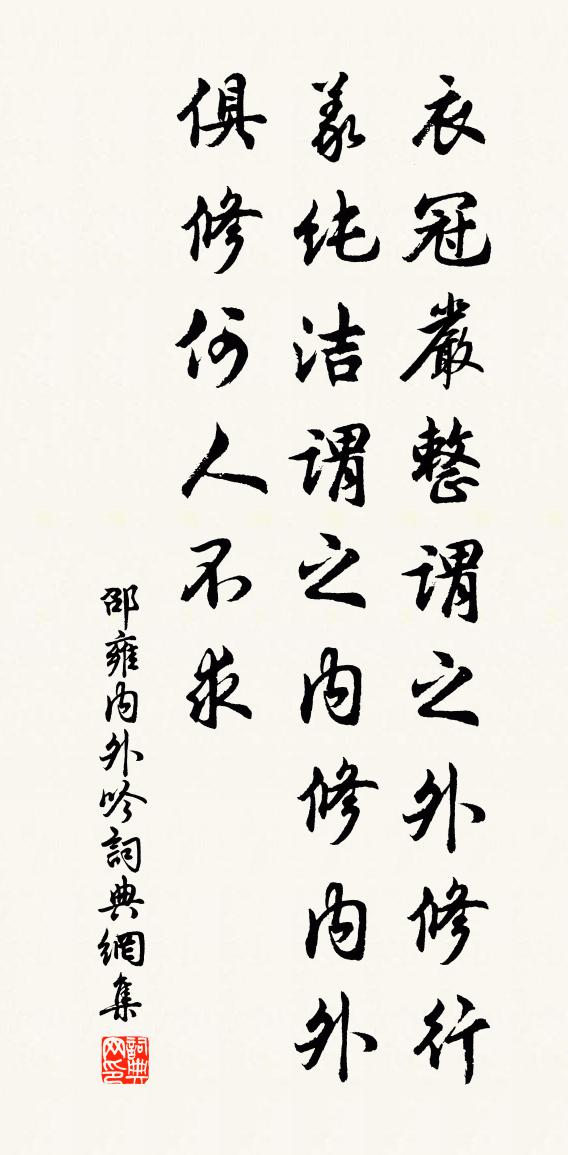 衣冠嚴整謂之外修行
義纯洁謂之内修内外
俱修何人不求
邵雍内外吟詞典網集
詞典网印